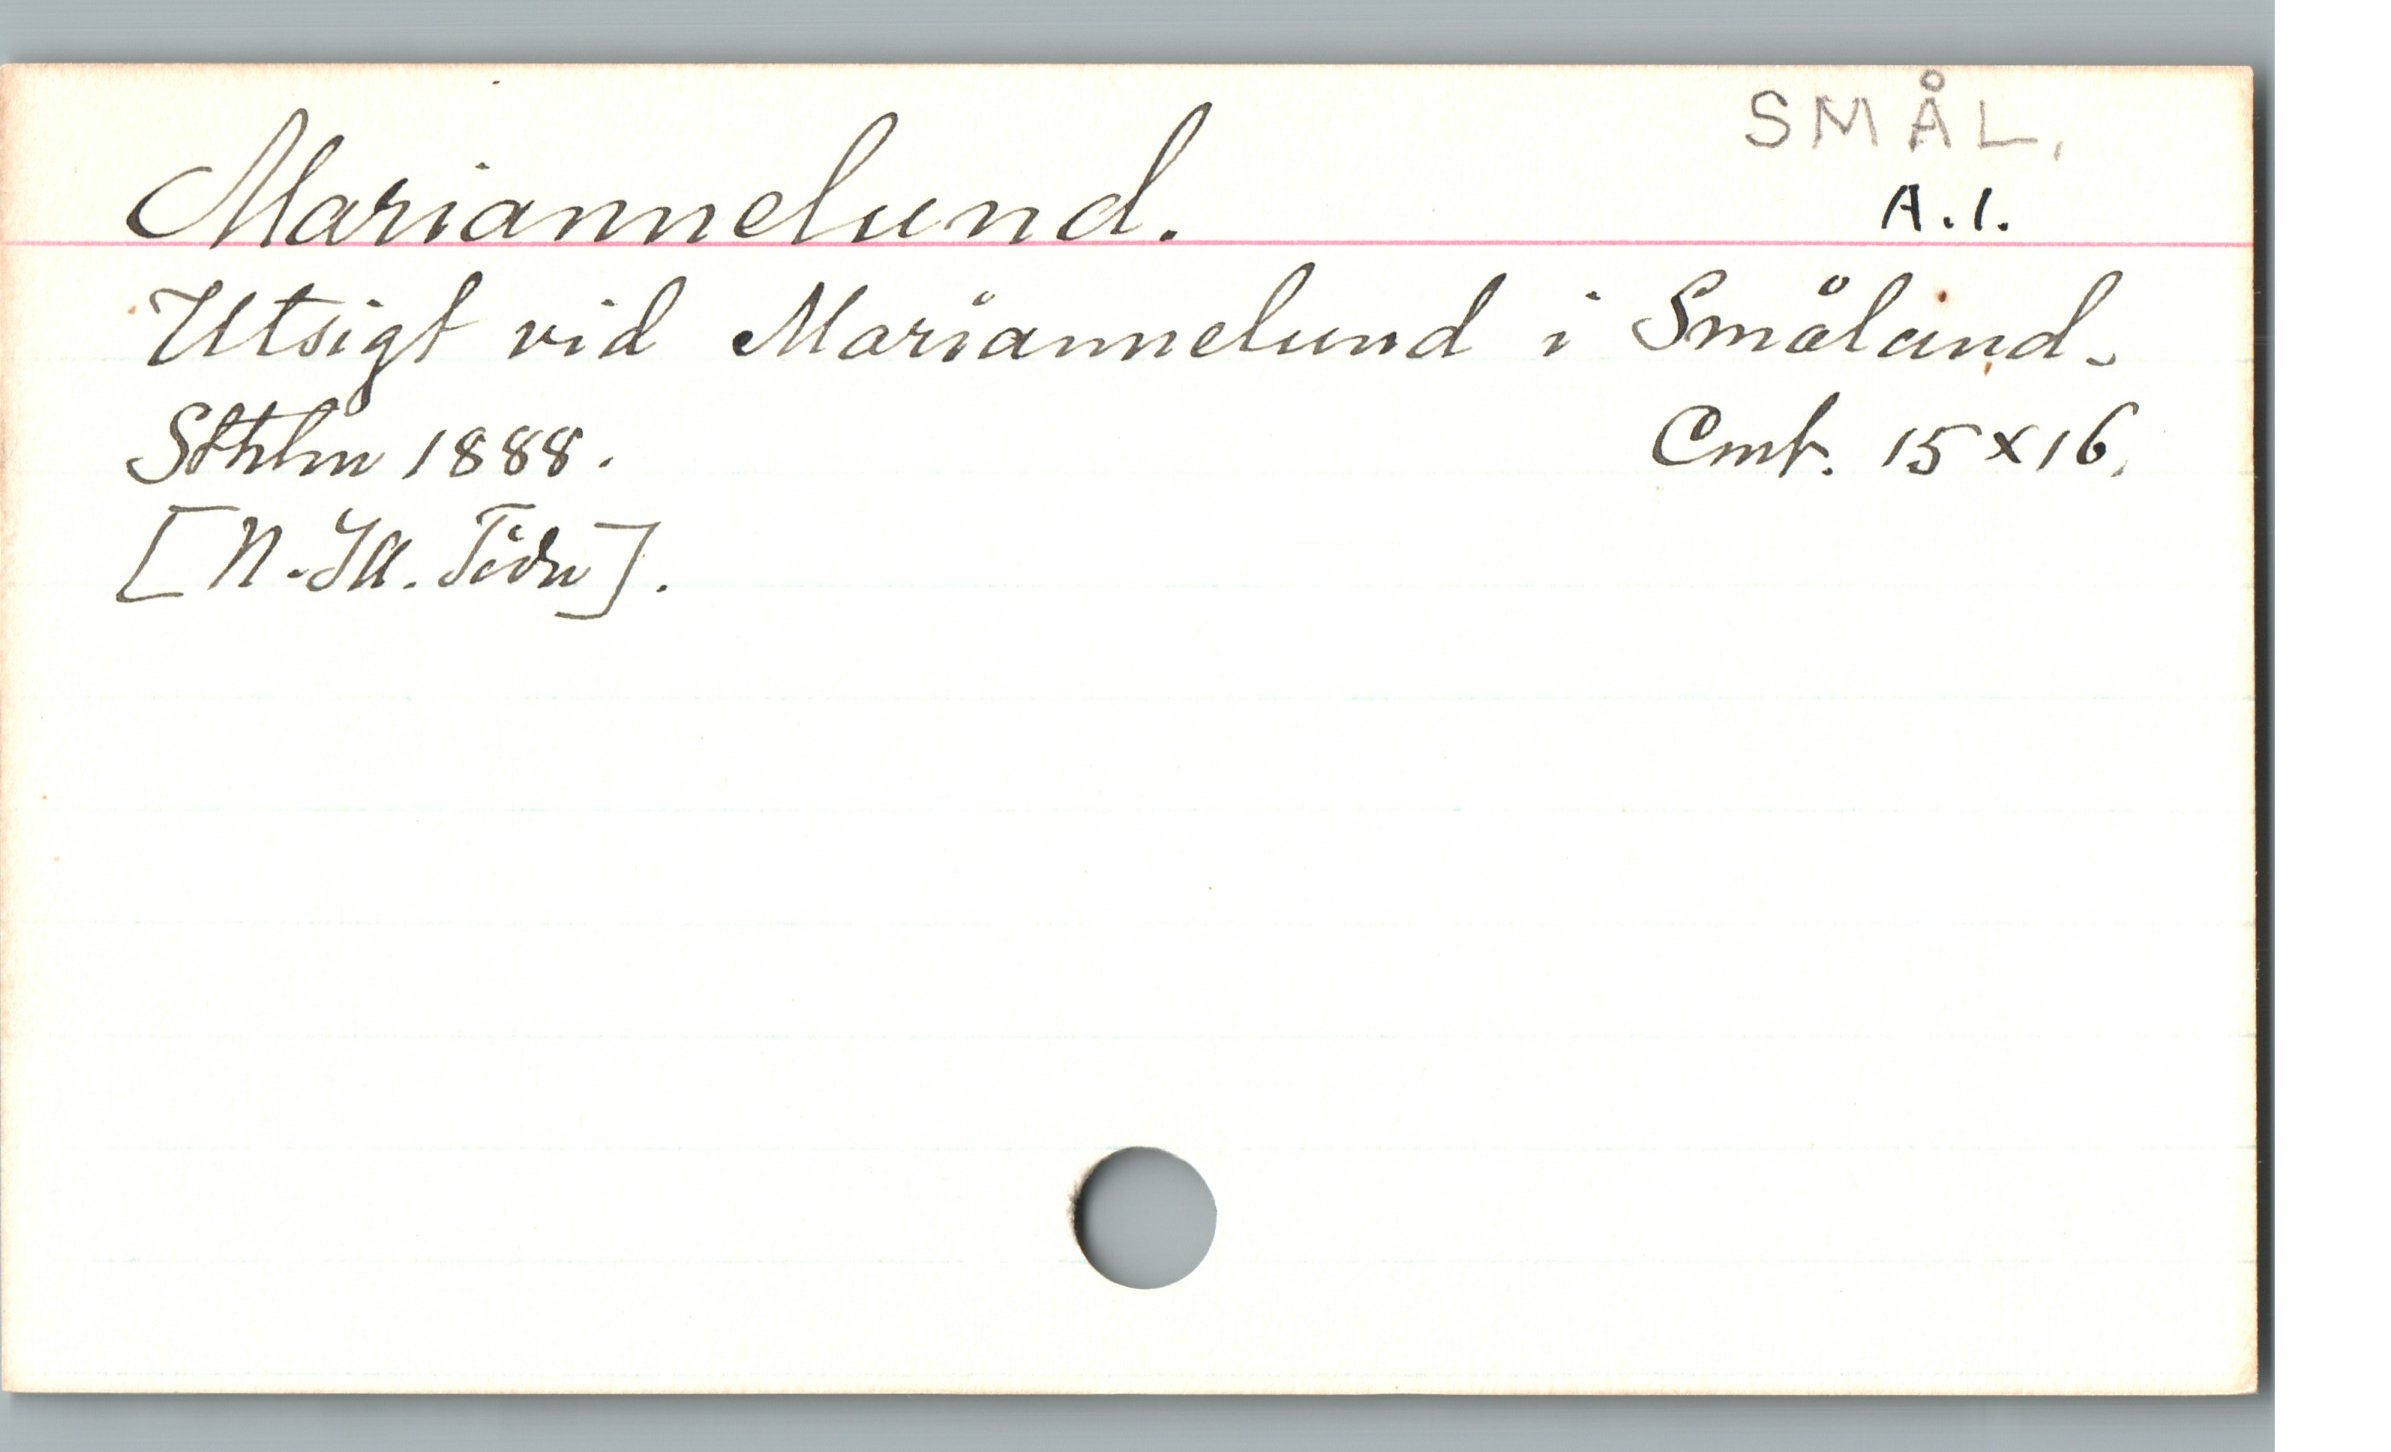 SMÅL.
Mariannelund. A.1.
Utsigt vid Mariannelund i Småland.
Sthlm 1888. Cmt. 15x16.
[N. Ill. Tidn].